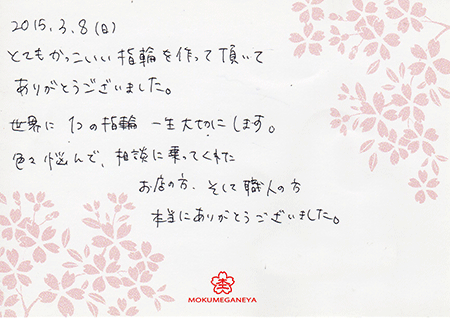 2015.3.8(日)
とてもかっこいい指輪を作って頂いて
ありがとうございました。
世界に1つの指輪 一生大切にします。
色々悩んで、相談に乗ってくれた
お店の方、そして職人の方
本当にありがとうございました。
MOKUMEGANEYA